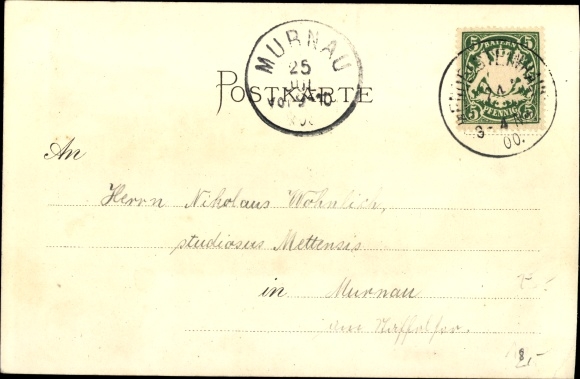 MURNAU
25
JUL
00
POSTKARTE
5 BAYERN 5
5 PFENNIG 5
3-4 N
00.
An
Herrn Nikolaus Wöhnlich,
studiosus Mettensis
in Murnau
am Staffelsee.